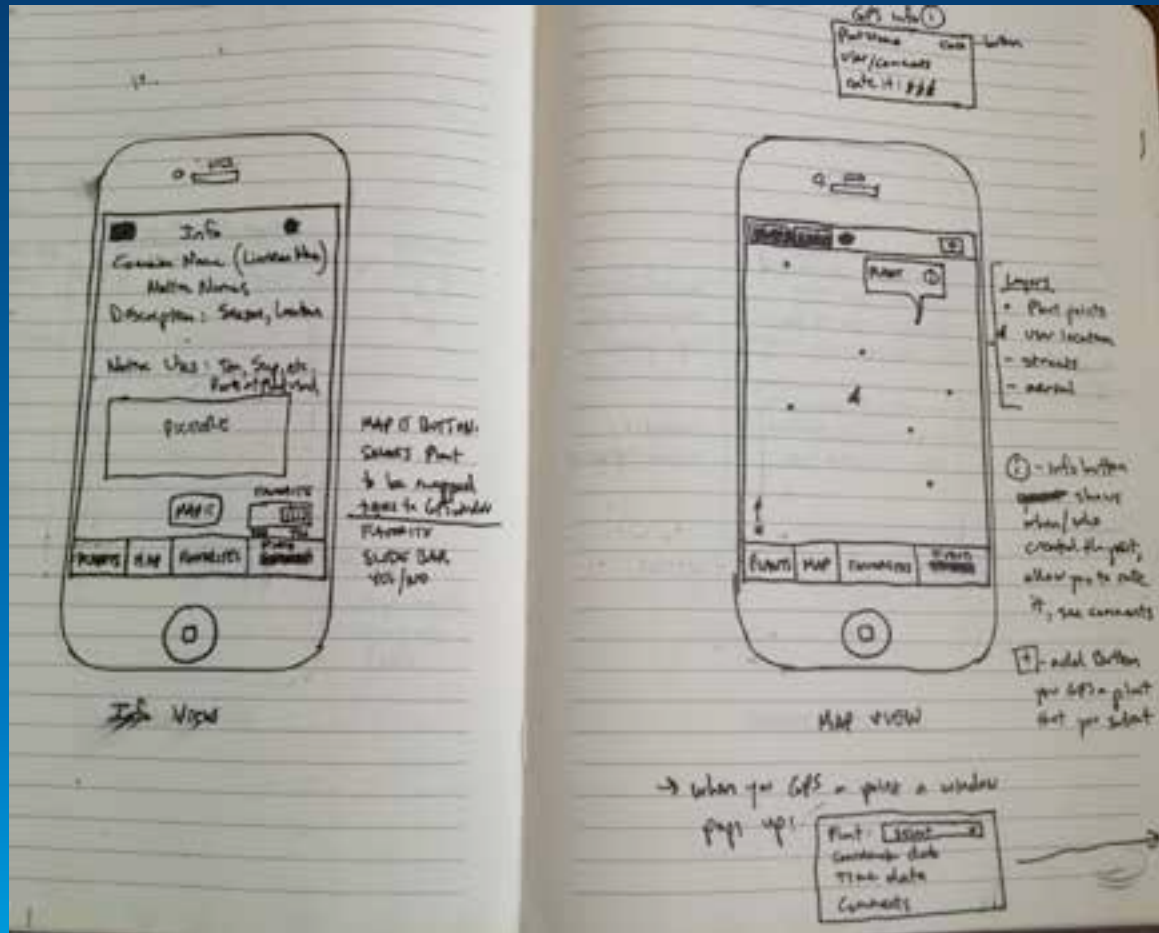 Info
Common Name (Linnean Name)
Native Names
Description: Season, Location
Native Uses: Tea, Soap, etc.
Part of Plant Used
picture
MAP IT
FAVORITE
PLANTS MAP FAVORITES
MAP IT BUTTON:
Selects Plant
to be mapped
takes to GPS window
FAVORITE
SLIDE BAR
YES/NO
Info VIEW
GPS info i
Plant Name
button
User/comments
rate it:
PLANT i
+
PLANTS MAP FAVORITES
Layers
• Plant points
user location
- streets
- aerial
i - info button
shows
when/who
created the point,
allow you to rate
it, see comments
+ - add Button
you GPS a plant
that you select
MAP VIEW
→ when you GPS a point a window
pops up:
Plant: select
Coordinate data
Time data
Comments